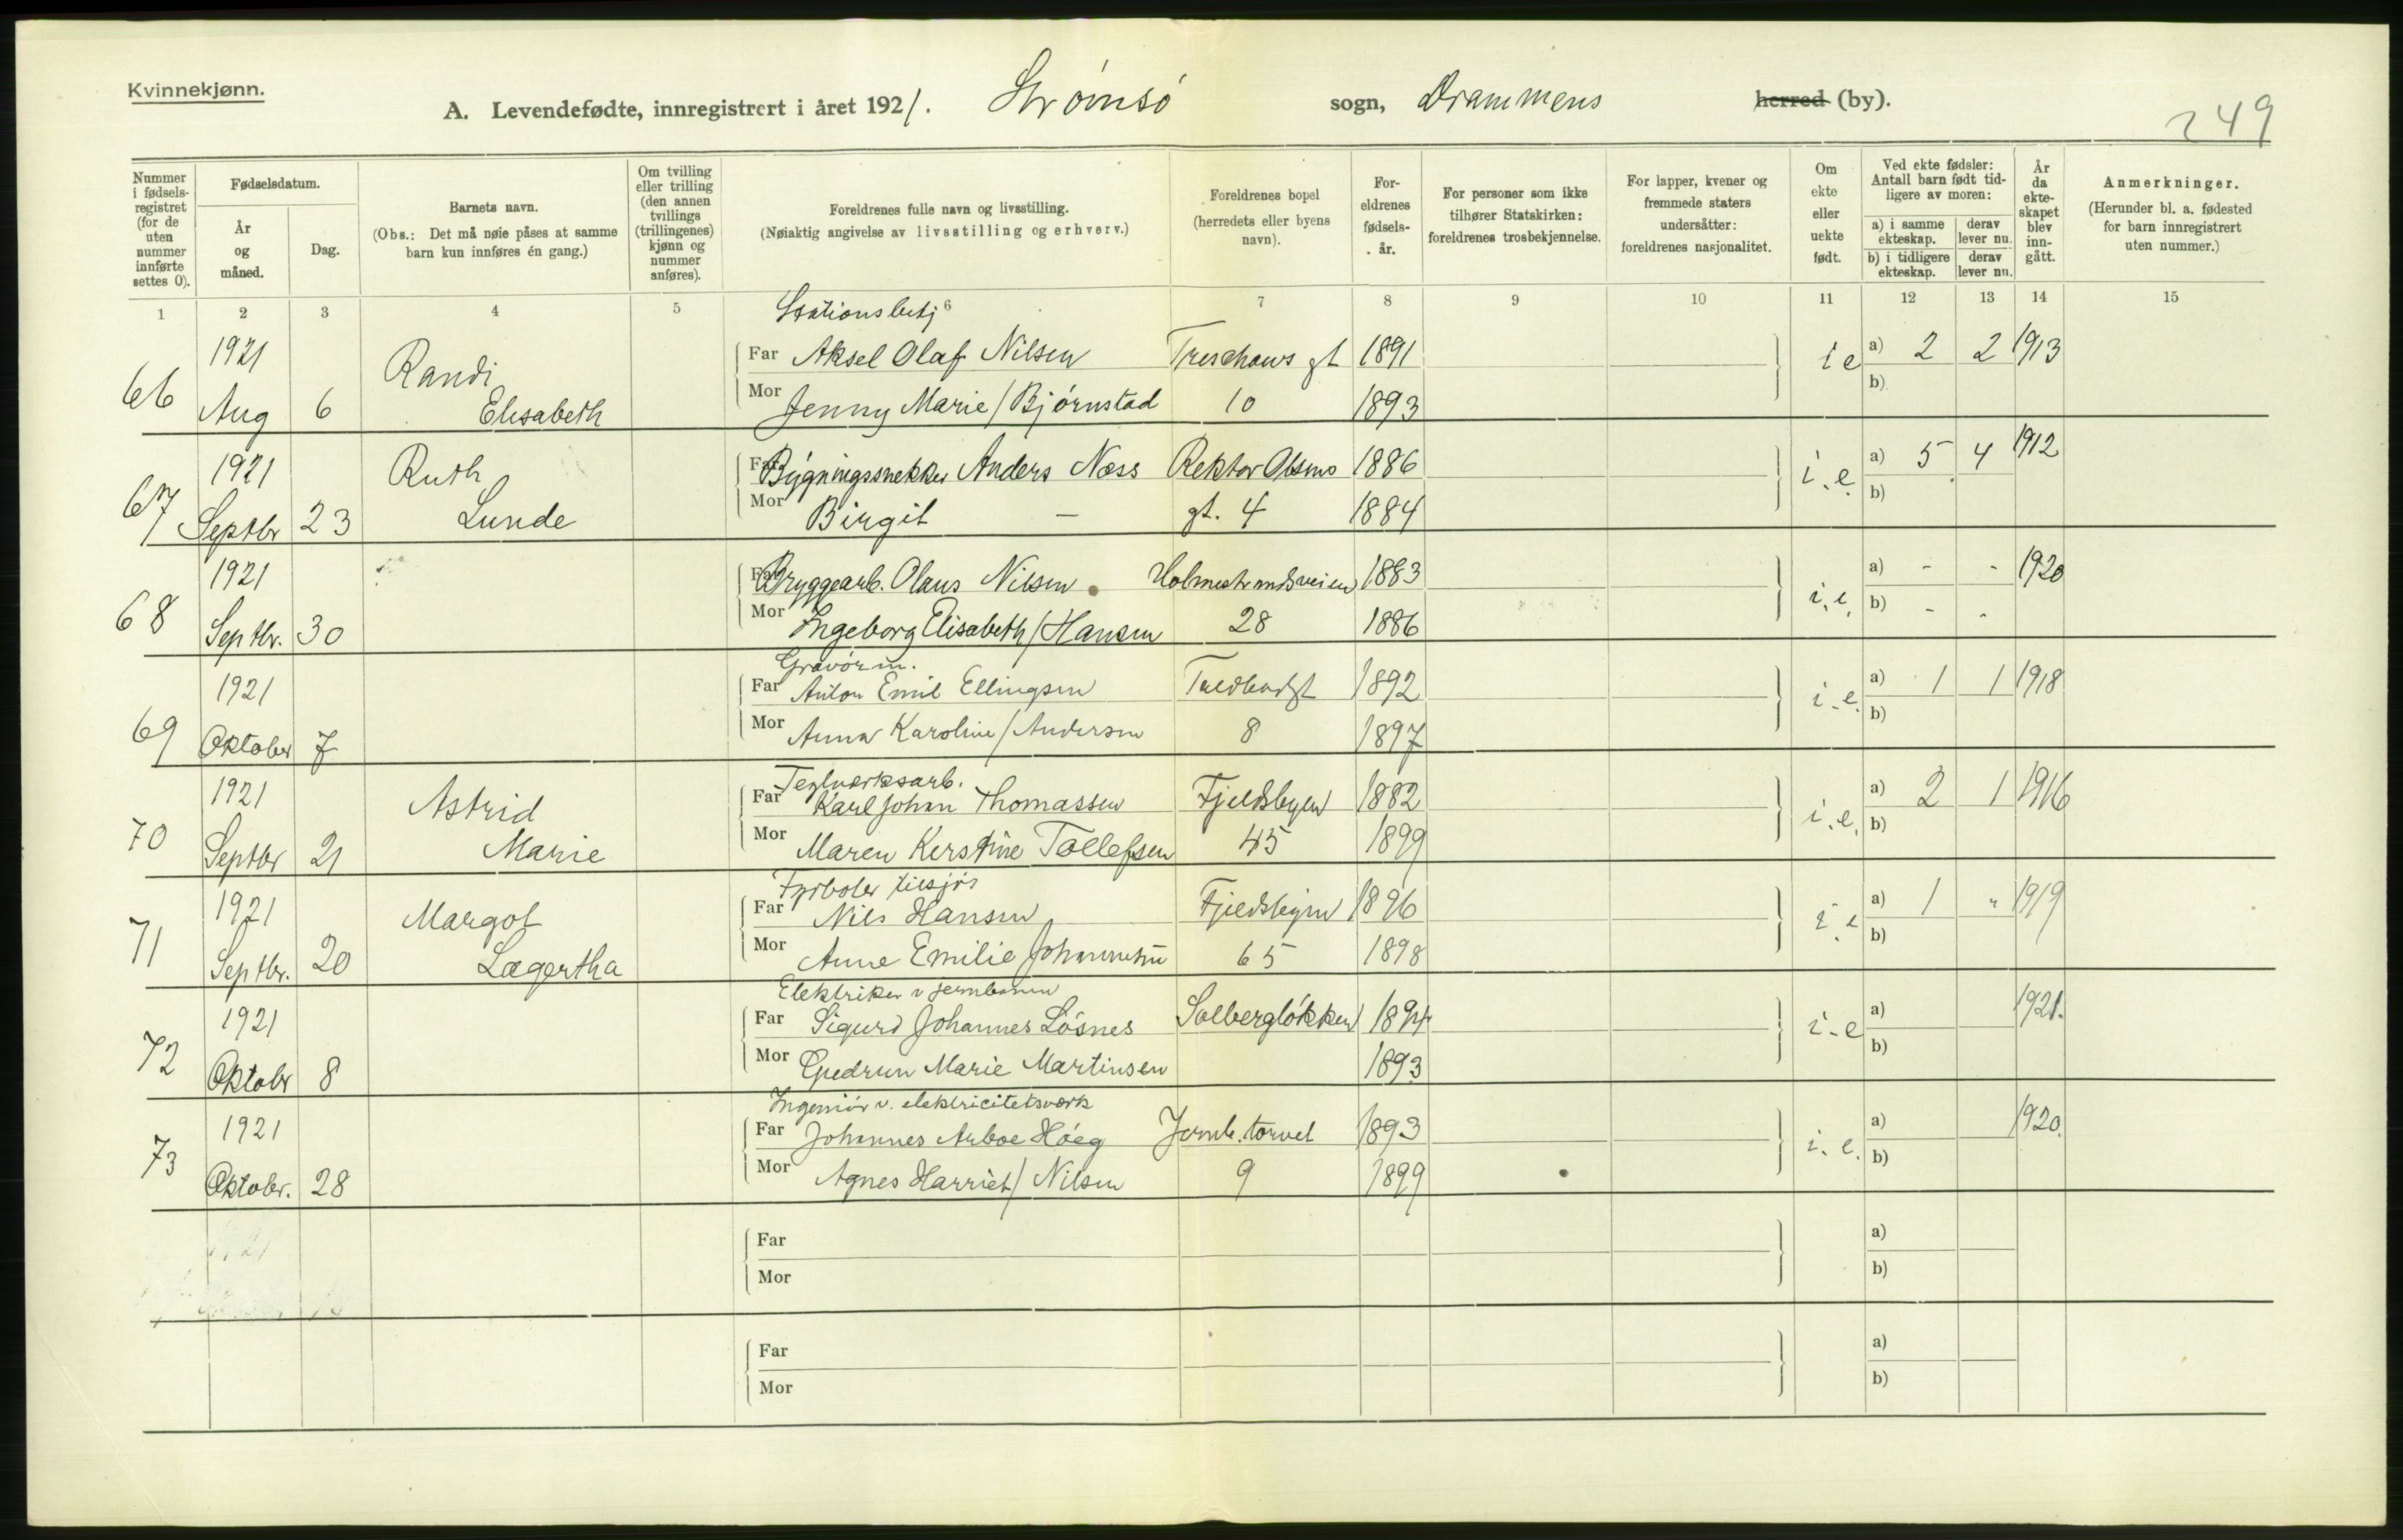 Kvinnekjønn.
A. Levendefødte, innregistrert i året 1921. Strømsø sogn, Drammens herred (by).
249
Nummer i fødselsregistret (for de uten nummer innførte settes 0).
Fødselsdatum.
År og måned.
Dag.
Barnets navn.
(Obs.: Det må nøie påses at samme barn kun innføres én gang.)
Om tvilling eller trilling (den annen tvillings (trillingenes) kjønn og nummer anføres).
Foreldrenes fulle navn og livsstilling.
(Nøiaktig angivelse av livsstilling og erhverv.)
Foreldrenes bopel (herredets eller byens navn).
Foreldrenes fødselsår.
For personer som ikke tilhører Statskirken: foreldrenes trosbekjennelse.
For lapper, kvener og fremmede staters undersåtter: foreldrenes nasjonalitet.
Om ekte eller uekte født.
Ved ekte fødsler: Antall barn født tidligere av moren:
a) i samme ekteskap. derav lever nu.
b) i tidligere ekteskap. derav lever nu.
År da ekteskapet blev inngått.
Anmerkninger.
(Herunder bl. a. fødested for barn innregistrert uten nummer.)
1 2 3 4 5 6 7 8 9 10 11 12 13 14 15
Stationsbetj
1921 Randi Far Aksel Olaf Nilsen Treschows gt 1891 i e a) 2 2 1913
66 Aug 6 Elisabeth Mor Jenny Marie / Bjørnstad 10 1893 b)
1921 Ruth Far Bygningssnekker Anders Næss Rektor Olsens 1886 i.e. a) 5 4 1912
67 Septbr 23 Lunde Mor Birgit — gt. 4 1884 b)
1921 Far Bryggearb. Olaus Nilsen Holmestrandsveien 1883 i.e. a) - - 1920
68 Septbr. 30 Mor Ingeborg Elisabeth / Hansen 28 1886 b) - -
Gravør m.
1921 Far Anton Emil Ellingsen 1892 i.e. a) 1 1 1918
69 Oktober 7 Mor Anna Karoline / Andersen 8 1897 b)
Teglverksarb.
1921 Astrid Far Karl Johan Thomassen Fjeldsbyen 1882 i.e. a) 2 1 1916
70 Septbr 21 Marie Mor Maren Kerstine Tollefsen 45 1899 b)
Fyrbøter tilsjøs
1921 Margot Far Nils Hansen Fjeldsbyen 1896 i.e a) 1 " 1919
71 Septbr. 20 Lægertha Mor Anne Emilie Johannesen 65 1898 b)
Elektriker v jernbanen
1921 Far Sigurd Johannes Løsnes Solbergløkken 1894 i-e a) 1921.
72 Oktobr 8 Mor Gudrun Marie Martinsen 1893 b)
Ingeniør v. elektricitetsverk
1921 Far Johannes Arboe Høeg Jernb. torvet 1893 i. e. a) 1920.
73 Oktober. 28 Mor Agnes Harriet / Nilsen 9 1899 b)
Far a)
Mor b)
Far a)
Mor b)